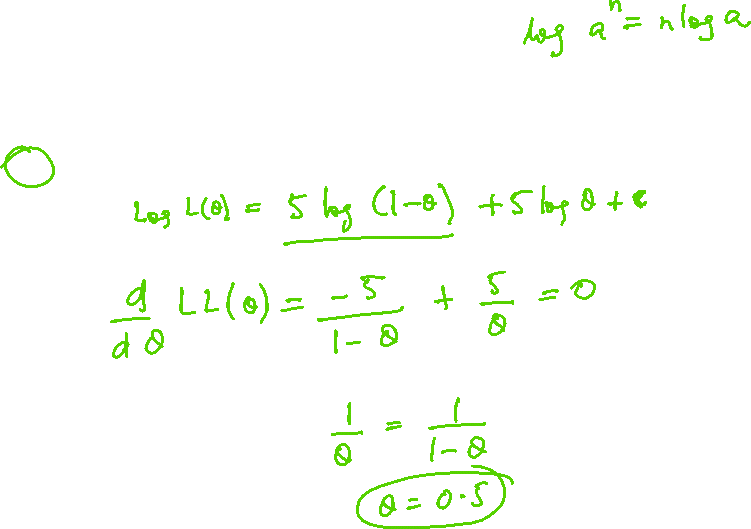 log a^n = n log a
Log L(θ) = 5 log (1-θ) + 5 log θ + c
d/dθ LL(θ) = -5/(1-θ) + 5/θ = 0
1/θ = 1/(1-θ)
θ = 0.5